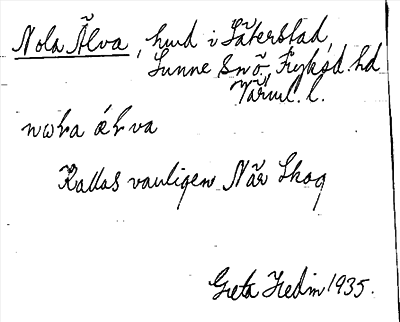 Nola Älva, hmd i Säterstad,
Sunne Snö. Fryksd. hd
Värml. l.
nωla älva
Kallas vanligen När Skog
Greta Hedin 1935.